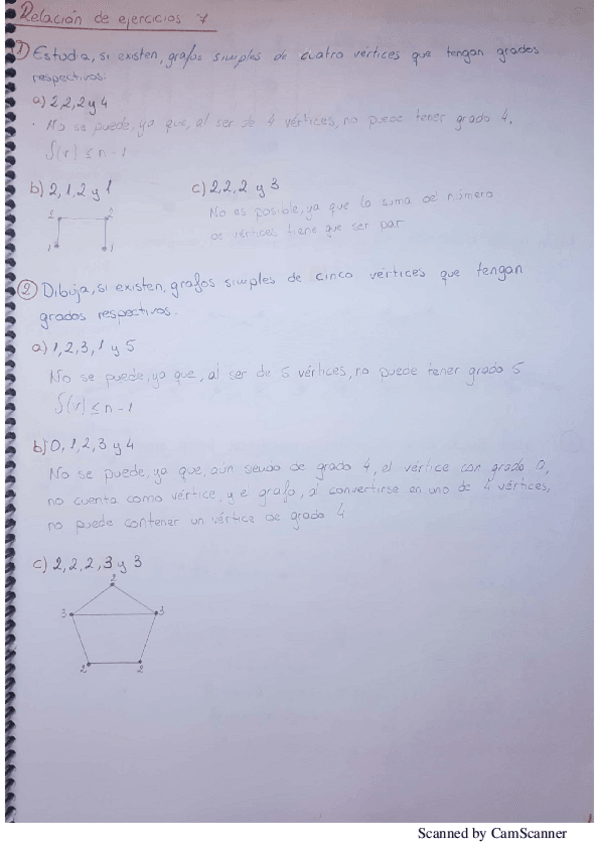 Relación de ejercicios 7
1) Estudia, si existen, grafos simples de cuatro vértices que tengan grados
respectivos:
a) 2,2,2 y 4
· No se puede, ya que, al ser de 4 vértices, no puede tener grado 4.
δ(v) ≤ n-1
b) 2, 1, 2 y 1
2 2
1 1
c) 2,2,2 y 3
No es posible, ya que la suma del número
de vértices tiene que ser par
2) Dibuja, si existen, grafos simples de cinco vértices que tengan
grados respectivos.
a) 1, 2, 3, 1 y 5
No se puede, ya que, al ser de 5 vértices, no puede tener grado 5
δ(v) ≤ n-1
b) 0, 1, 2, 3 y 4
No se puede, ya que, aún siendo de grado 4, el vértice con grado 0,
no cuenta como vértice, y el grafo, al convertirse en uno de 4 vértices,
no puede contener un vértice de grado 4
c) 2, 2, 2, 3 y 3
2
3 3
2 2
Scanned by CamScanner